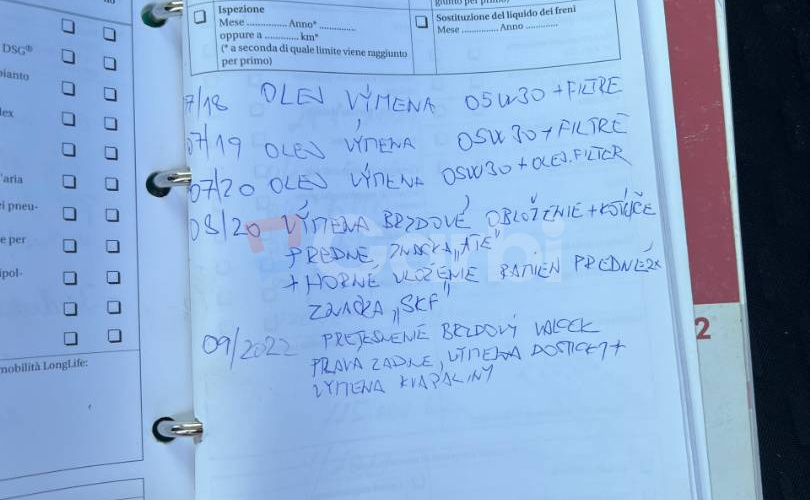 no
DSG®
pianto
dex
l'aria
ei pneu-
e per
ipol-
mobilità LongLife:
Ispezione
Mese .............. Anno* ..............
oppure a ............ km*
(* a seconda di quale limite viene raggiunto
per primo)
giunto per primo)
Sostituzione del liquido dei freni
Mese .............. Anno ............
7/18 OLEJ VÝMENA O5W30 + FILTRE
07/19 OLEJ VÝMENA O5W30 + FILTRE
07/20 OLEJ VÝMENA O5W30 + OLEJ. FILTER
08/20 VÝMENA BRZDOVÉ OBLOŽENIE + KOTÚČE
PREDNÉ, ZNAČKA „ATE"
+ HORNÉ ULOŽENIE RAMIEN PREDNÉ 2x
ZNAČKA „SKF"
09/2022 PRETESNENIE BRZDOVÝ VALCEK
PRAVÁ ZADNE, VÝMENA DOSTICKY +
VÝMENA KVAPALINY
2
Garbi